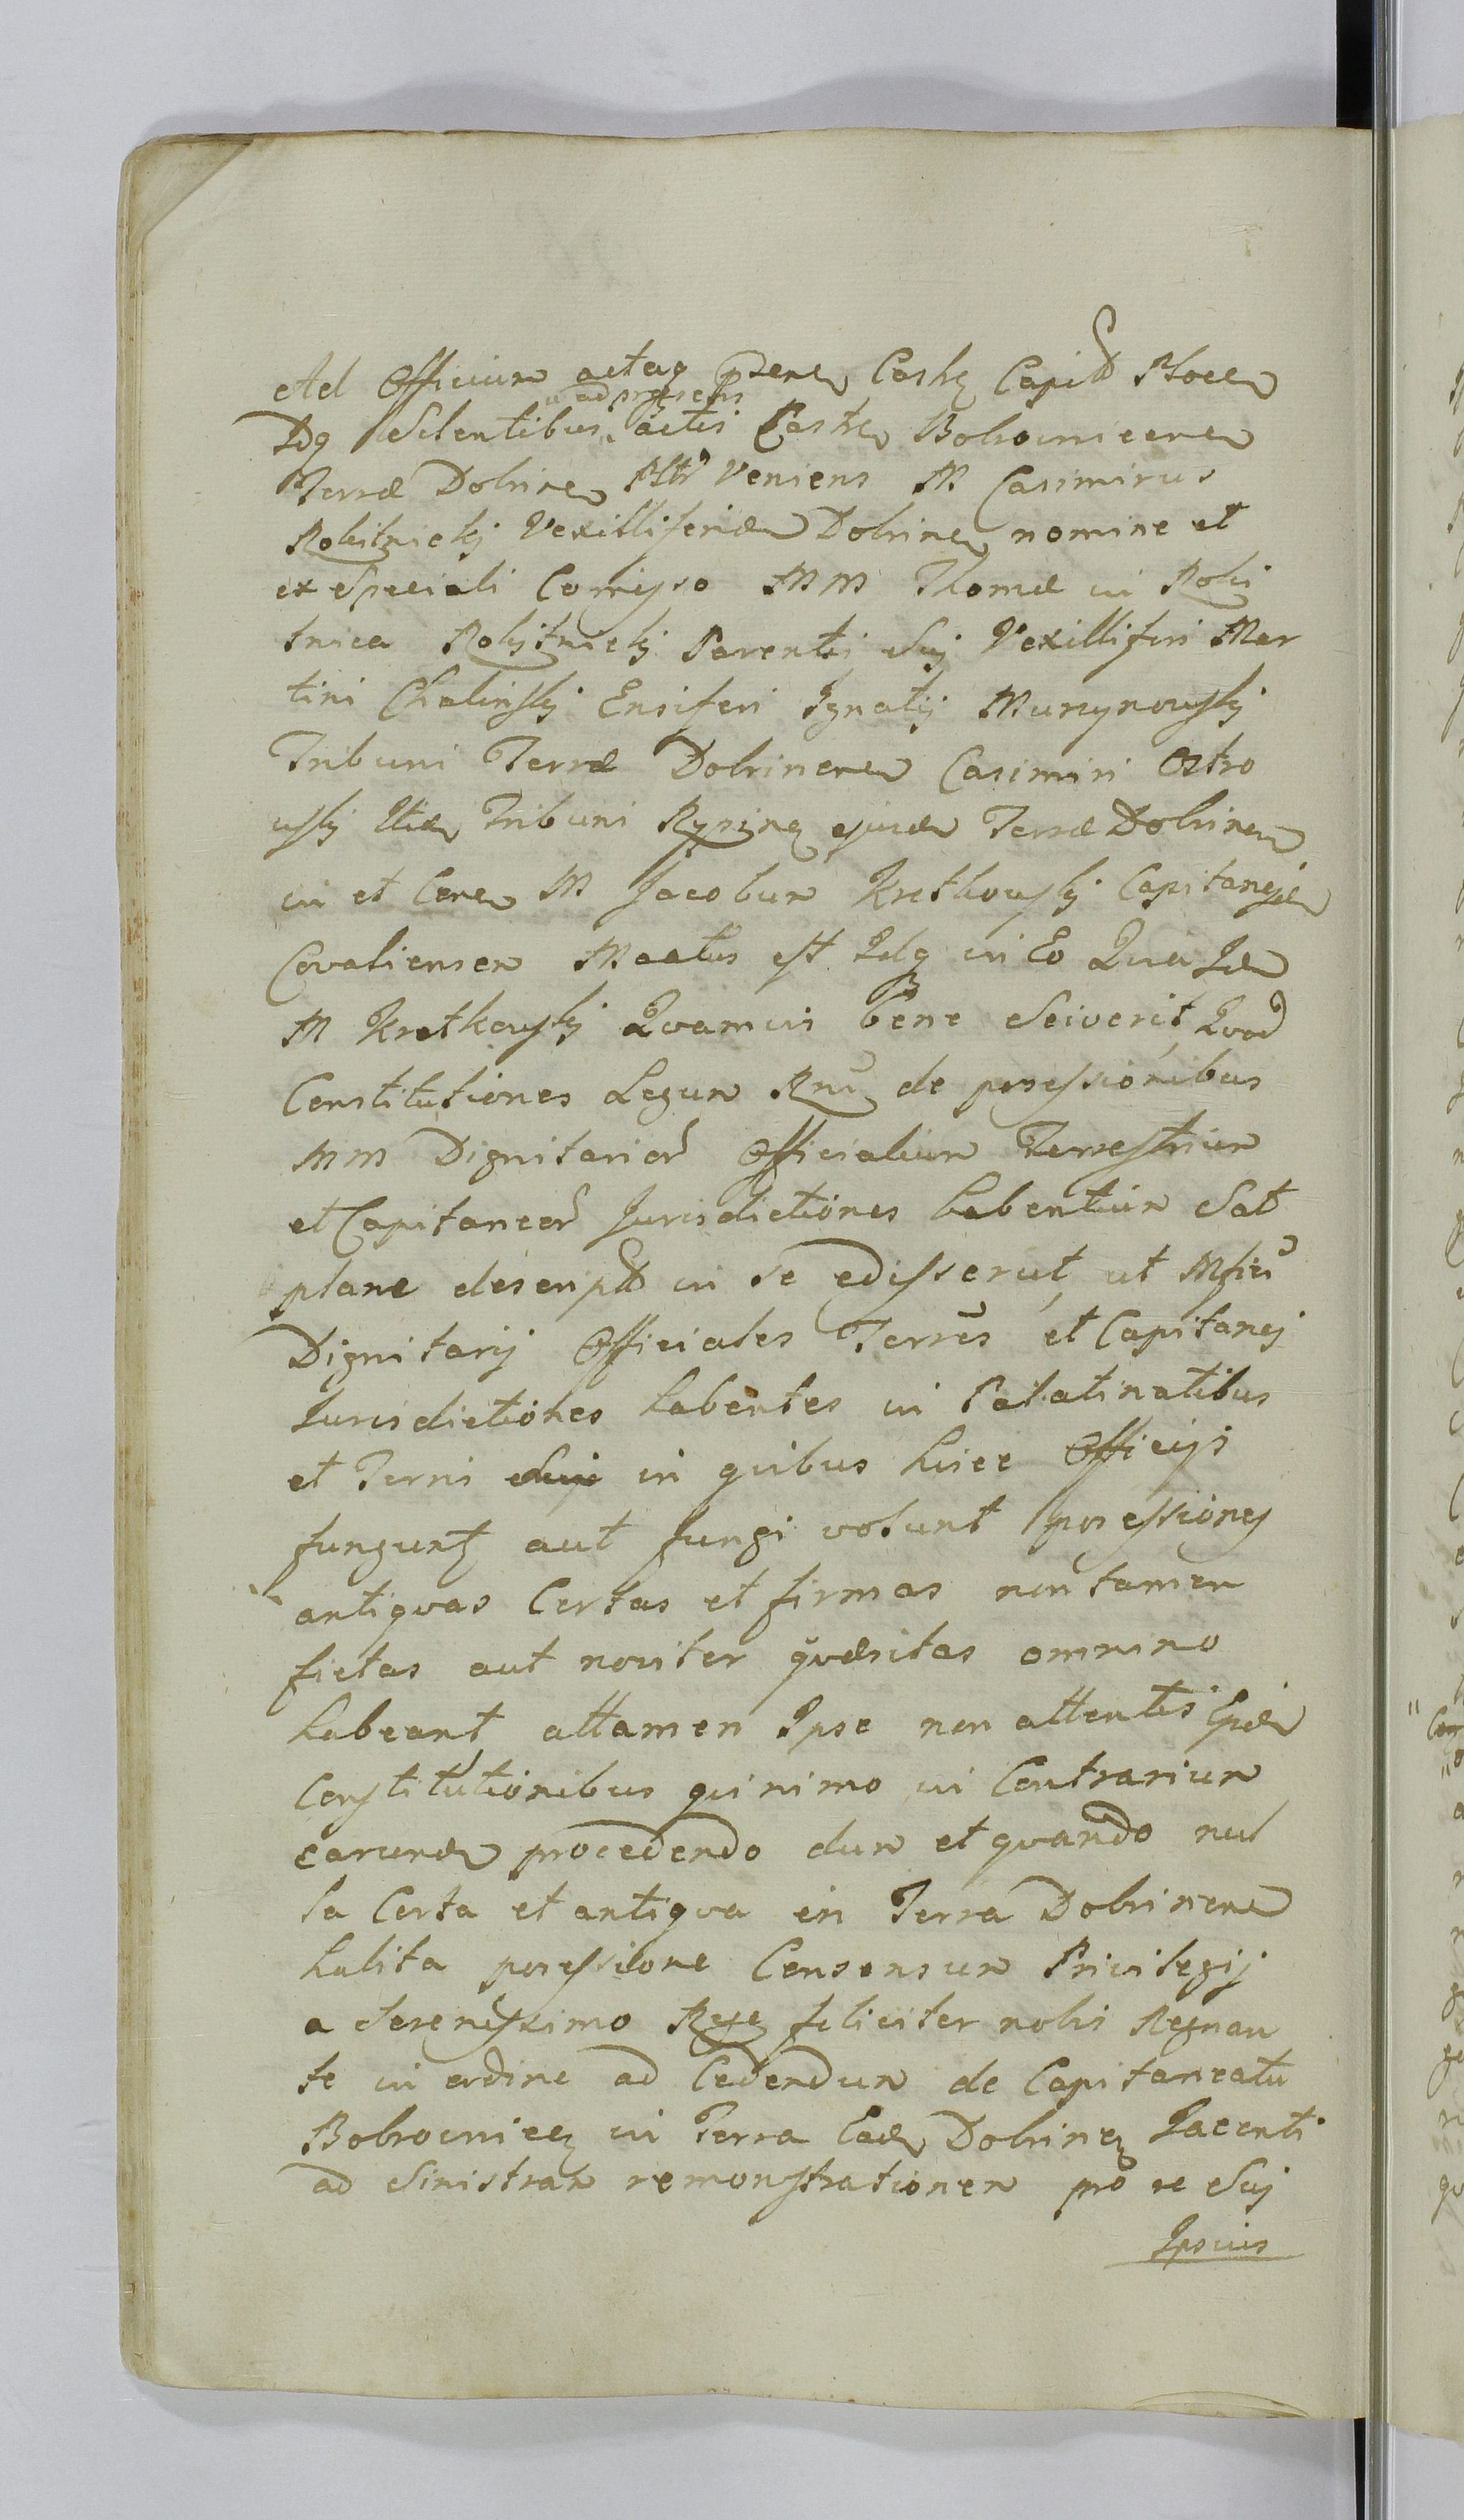 Ad Officium actaq psen Castr Capit Plocen
Idq Silentibus ad præsens actis Castr Bobrovnicen
Terræ Dobrinen Pltr Veniens M Casimirus
Robitnickj Vexilliferid Dobrinen nomine et
ex Speciali Comisso MM Thomæ in Robi
tnica Robitnickj Parentis Suj Vexilliferi Mar
tini Chalinskj Ensiferi Ignatij Mursynowskj
Tribuni Terræ Dobrinen Casimiri Ostro
wskj Tribuni Rypine ejusd Terræ Dobrinen
in et Cen M Jacobum Kretkowskj Capitaneu
Covaliensem Maatus est Idq in Eo Quia Id
M Kretkowskj Quamvis bene Sciverit Quod
Constitutiones Legum Rni de possessionibus
MM Dignitarior Officialium Terrestrium
et Capitaneor Jurisdictiones habentium Sat
plane descript in se edisserut, ut Mfici
Dignitarij Officiales Terres et Capitanej
Jurisdictiones habentes in Palatinatibus
et Terris in quibus huice Officijs
fungunt aut fungi volunt possessiones
antiquas Certas et firmas non tamen
fictas aut noviter quæsitas omnino
habeant attamen Ipse non attentis Ejsd
Constitutionibus quinimo in Contrarium
earund procedendo dum et quando nul
la Certa et antiqua in Terra Dobrinen
habita possessione Consensum Privilegij
a Serenissimo Rege feliciter nobis Regnan
te in ordine ad Cedendum de Capitaneatu
Bobrovnice in Terra Ead Dobrine Jacenti
ad Sinistram remonstrationem pro se Suj
Ipsius